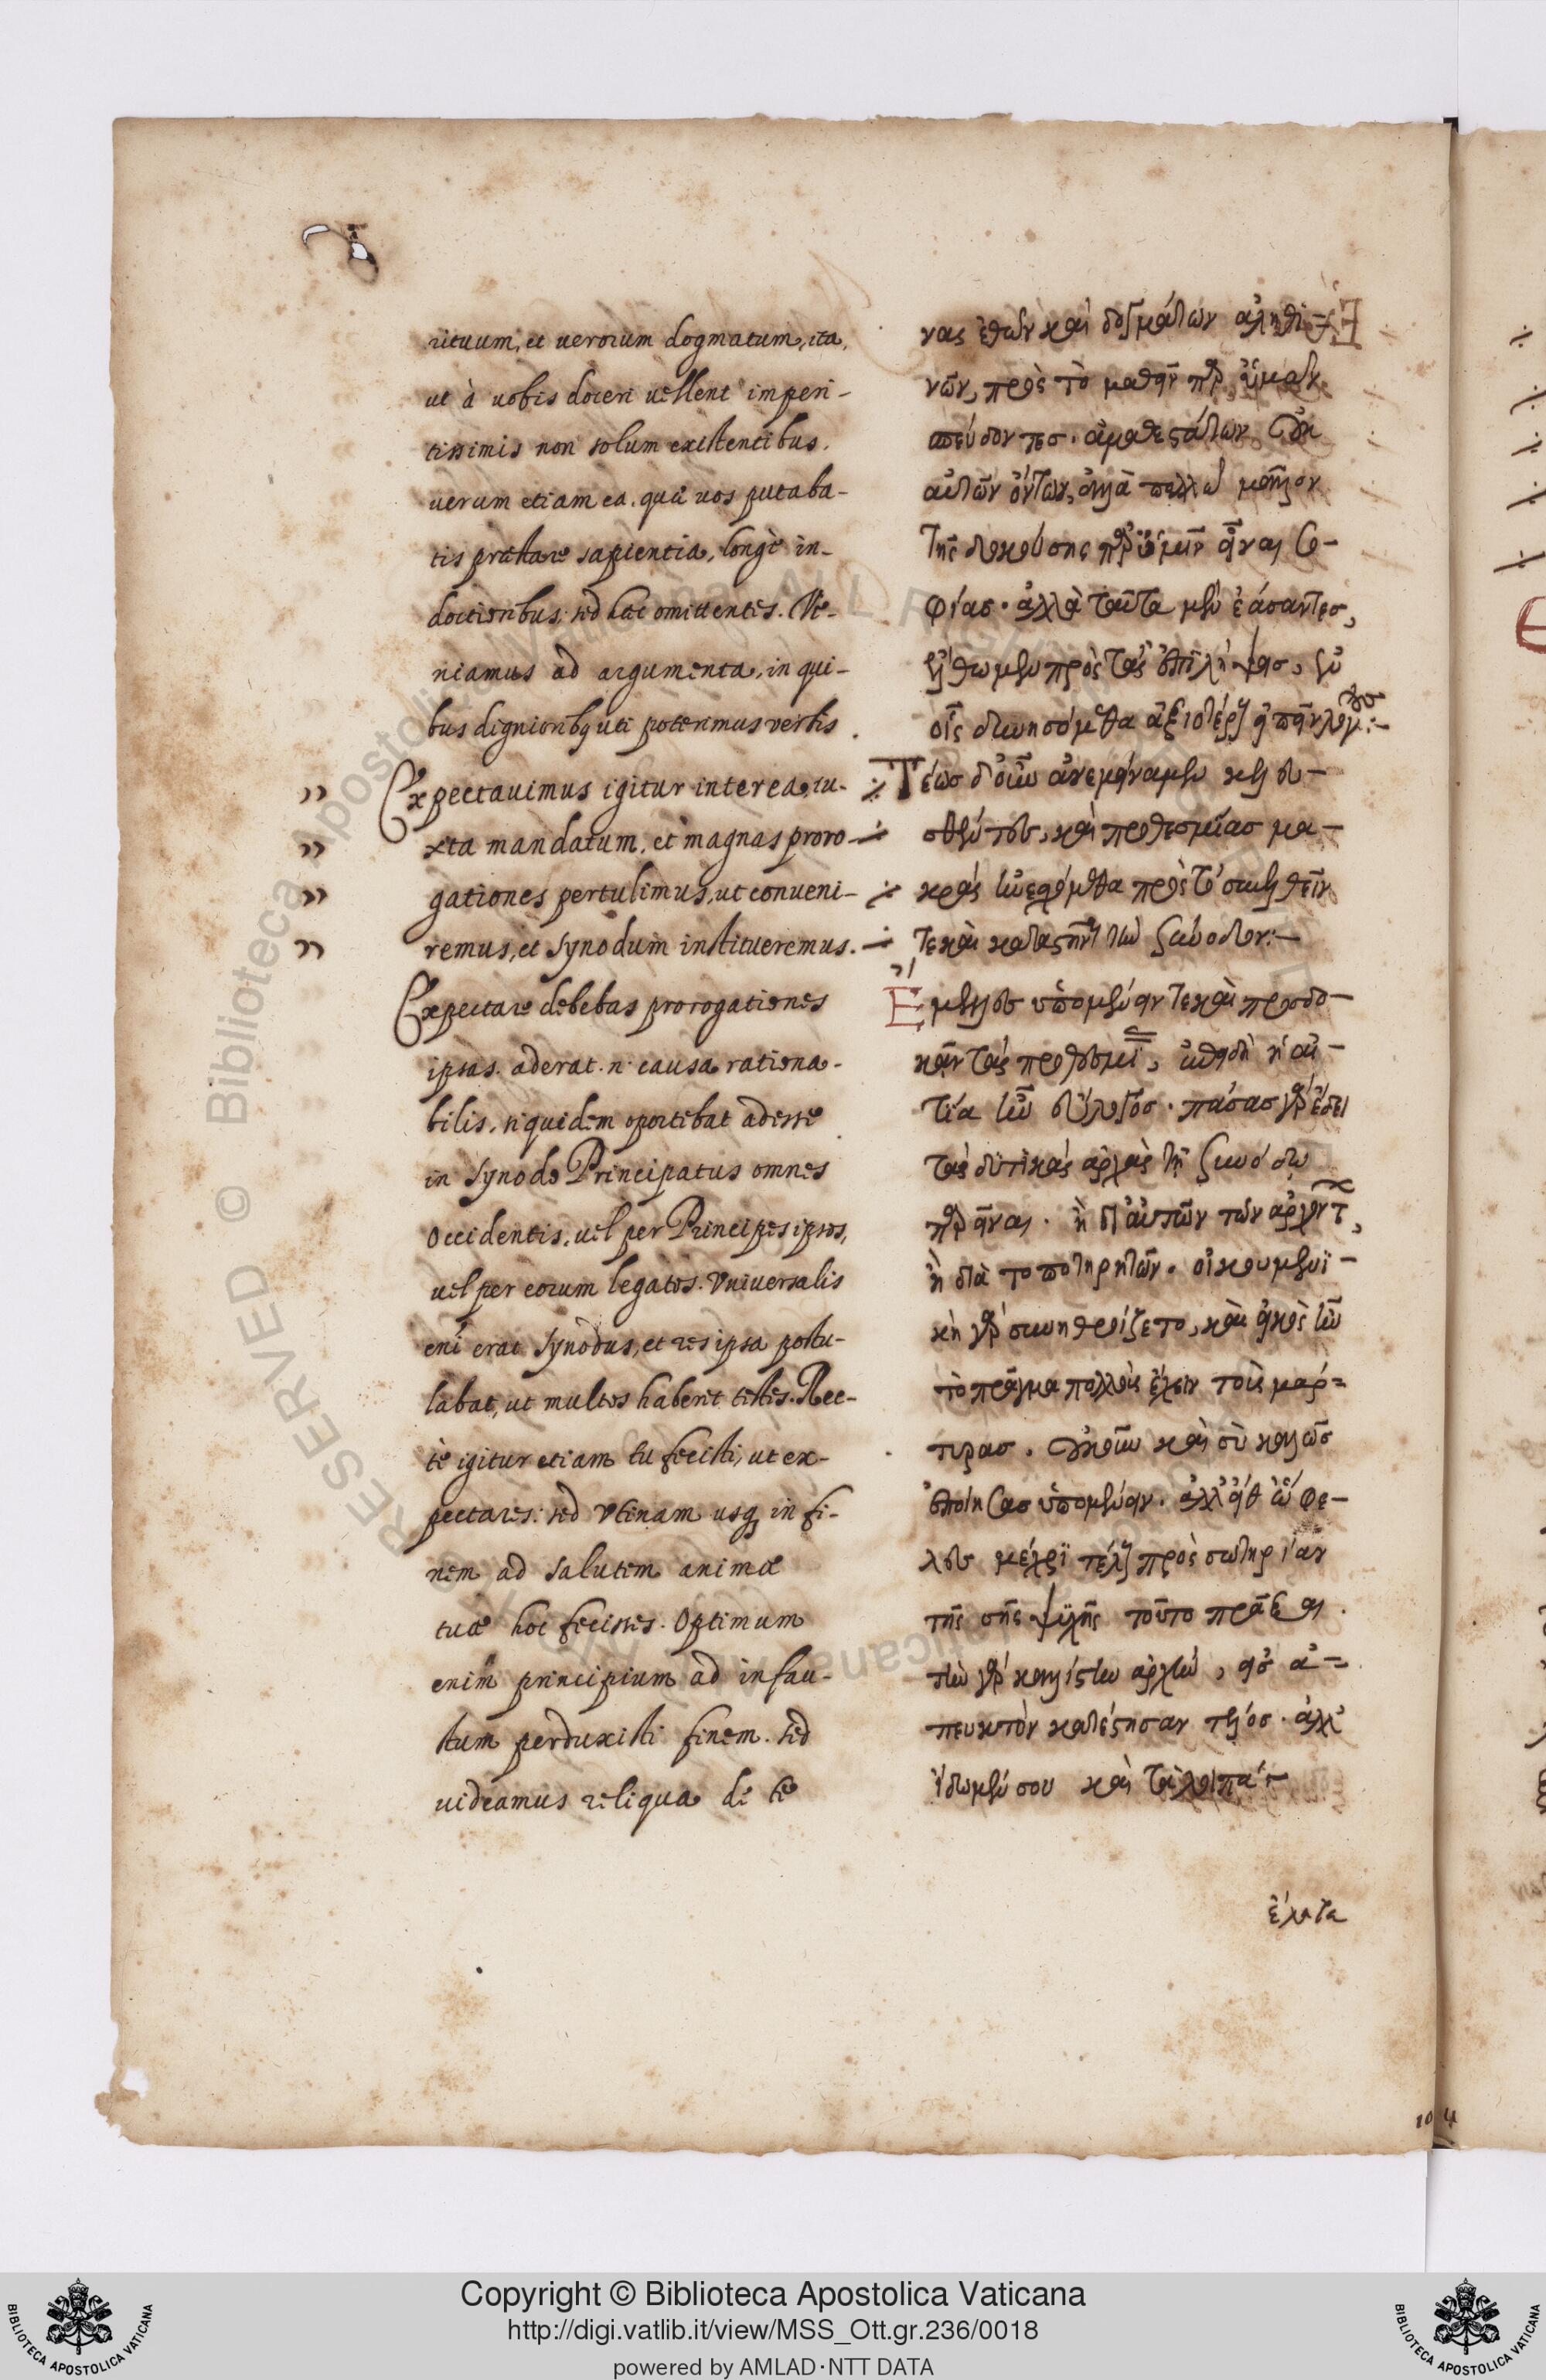 rituum, et uerorum dogmatum, ita,
ut à uobis doceri uellent imperi-
tissimis non solum existentibus,
uerum etiam ea, quã uos putaba-
tis præstare sapientia, longè in-
doctioribus; sed hæc omittentes. Ve-
niamus ad argumenta, in qui-
bus dignioribq uti poterimus verbis.
Expectauimus igitur interea, iu-
xta mandatum, et magnas proro-
gationes pertulimus, ut conueni-
remus, et synodum institueremus.
Expectare debebas prorogationes
ipsas. aderat .n. causa rationa-
bilis, siquidem oportebat adesse
in synodo Principatus omnes
Occidentis, uel per Principes ipsos,
uel per eorum legatos. Vniuersalis
eni erat synodus, et res ipsa postu-
labat, ut multos haberet testes. Rec-
tè igitur etiam tu fecisti, ut ex-
pectares: sed Vtinam usq in fi-
nem ad salutem animæ
tuæ hoc fecisses. Optimum
enim principium ad infau-
stum perduxisti finem. sed
uideamus reliqua de te
νας ἐθῶν καὶ δογμάτων ἀληθι-
νῶν, πρὸς τὸ μαθεῖν παρ' ὑμῶν
σπεύδοντες. ἀμαθεστάτων
αὐτῶν ὄντων, ἀλλὰ πολλῷ μᾶλλον
τῆς δοκούσης παρ' ὑμῖν εἶναι σο-
φίας. ἀλλὰ ταῦτα μὲν ἐάσαντες,
ἔλθωμεν πρὸς τὰς ἐπιλήψεις, ἐν
οἷς δυνησόμεθα
Τέως δ' οὖν ἀνεμείναμεν κελευ-
σθέντες, καὶ προθεσμίας μα-
κρὰς ὑπεφέρομεθα πρὸς τὸ συνελθεῖν
τε καὶ καταστῆναι τὴν σύνοδον:-
Ἔμελλες ὑπομένειν τε καὶ προσδο-
κᾶν τὰς προθεσμί, ἐπειδὴ ἡ αἰ-
τία ἦν εὔλογος. πάσας γὰρ ἔδει
τὰς δυτικὰς ἀρχὰς τῇ συνόδῳ
παρεῖναι. ἢ δι' αὐτῶν τῶν ἀρχόντ,
ἢ διὰ τοποτηρητῶν. οἰκουμενϊ-
κὴ γὰρ συνηθροίζετο, καὶ εἰκὸς ἦν
τὸ πρᾶγμα πολλοὺς ἔχειν τοὺς μάρ-
τυρας. οὐκοῦν καὶ σὺ καλῶς
ἐποίησας ὑπομένειν. ἀλλ' εἴθ' ὤφε-
λες μέχρϊ τέλους πρὸς σωτηρίαν
τῆς σῆς ψυχῆς τοῦτο πρᾶξαι.
τὴν γὰρ καλλίστην ἀρχὴν, εἰς ἀ-
πευκτὸν κατέστησαν τέλος. ἀλλ'
ἴδωμέν σου καὶ τὰ λοιπά:-
104
Copyright © Biblioteca Apostolica Vaticana
http://digi.vatlib.it/view/MSS_Ott.gr.236/0018
powered by AMLAD·NTT DATA
BIBLIOTECA APOSTOLICA VATICANA
BIBLIOTECA APOSTOLICA VATICANA